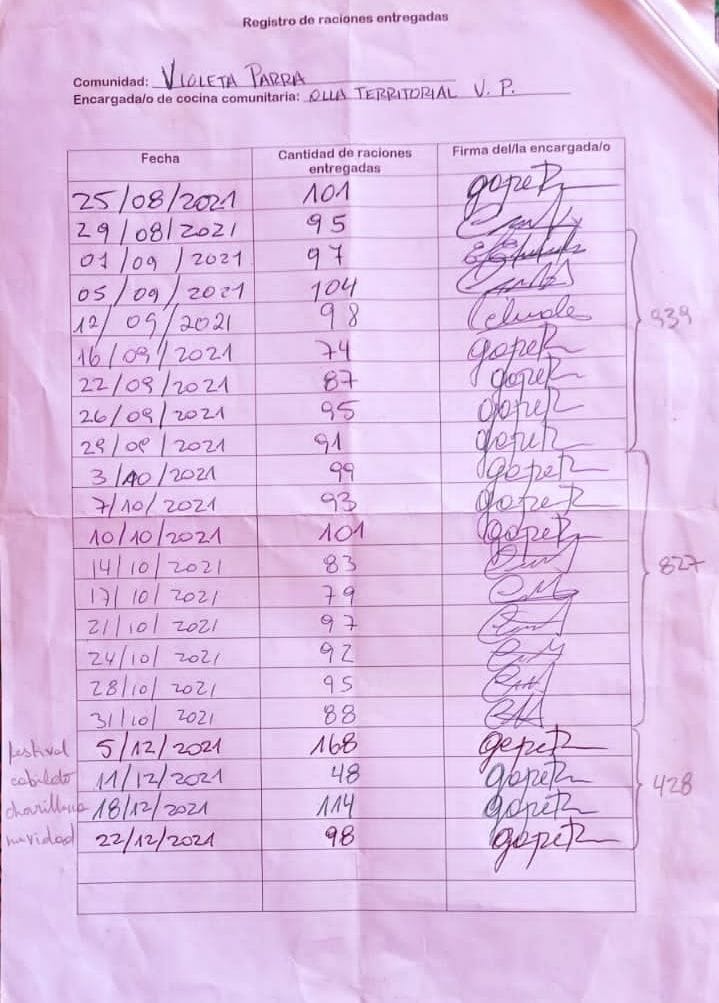 Registro de raciones entregadas
Comunidad: VIOLETA PARRA
Encargada/o de cocina comunitaria: OLLA TERRITORIAL V. P.
Fecha Cantidad de raciones entregadas Firma del/la encargada/o
25/08/2021 101
29/08/2021 95
01/09/2021 97
05/09/2021 104
12/09/2021 98 939
16/09/2021 74
22/09/2021 87
26/09/2021 95
29/09/2021 91
3/10/2021 99
7/10/2021 93
10/10/2021 101
14/10/2021 83 827
17/10/2021 79
21/10/2021 97
24/10/2021 92
28/10/2021 95
31/10/2021 88
festival 5/12/2021 168
cabildo 11/12/2021 48 428
18/12/2021 114
navidad 22/12/2021 98